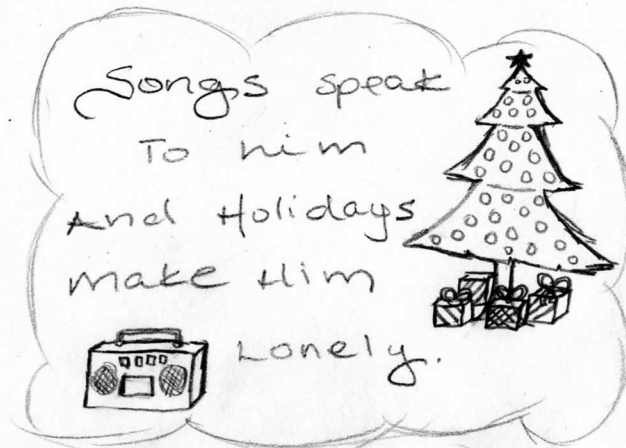 Songs speak
To him
And Holidays
make Him
Lonely.